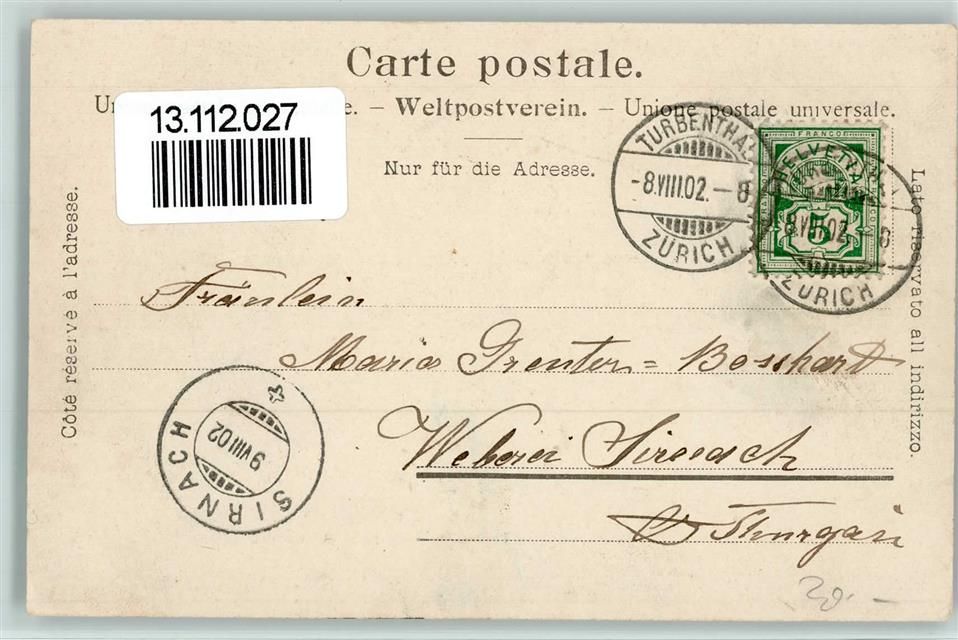 Carte postale.
13.112.027
Un e. – Weltpostverein. – Unione postale universale.
Nur für die Adresse.
Côté réservé à l'adresse.
Lato riservato all indirizzo.
TURBENTHAL
-8.VIII.02.-8
ZÜRICH
FRANCO
HELVETIA
5
8.VIII.02.-8
ZÜRICH
Fräulein
Maria Grenter = Bosshard
Weberei Sirnach
Kt Thurgau
SIRNACH
9 VIII 02
20.-